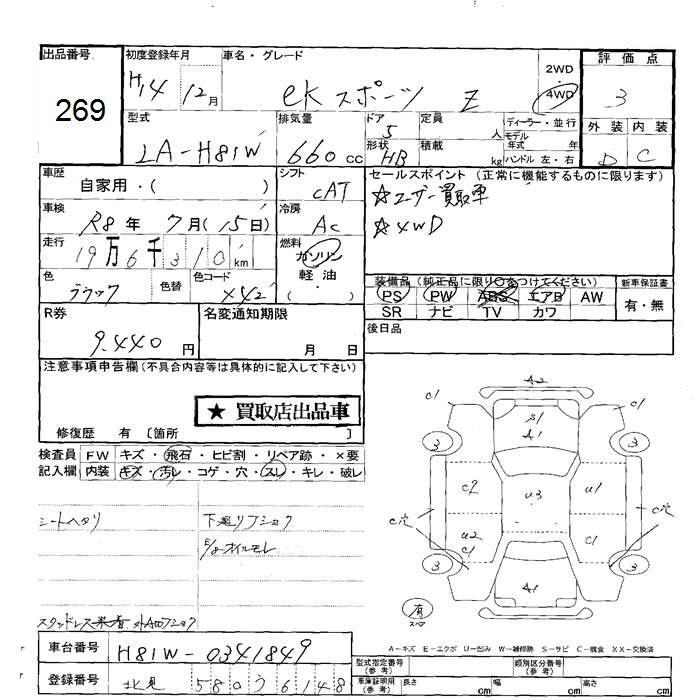 出品番号
269
初度登録年月
H14 12月
車名・グレード
eKスポーツ Z
2WD
4WD
評価点
3
外装 内装
D C
型式
LA-H81W
排気量
660 cc
ドア
5
形状
HB
定員
人
積載
kg
ディーラー・並行
モデル
年式 年
ハンドル 左・右
車歴
自家用・( )
シフト
CAT
車検
R8年 7月(15日)
冷房
AC
走行
19万6千310km
燃料
ガソリン
軽油
( )
色
ブラック
色替
色コード
X42
セールスポイント(正常に機能するものに限ります)
☆ユーザー買取車
☆4WD
装備品(純正品に限り○をつけてください)
PS PW ABS エアB AW
SR ナビ TV カワ
新車保証書
有・無
R券
9.440円
名変通知期限
月 日
後日品
注意事項申告欄(不具合内容等は具体的に記入して下さい)
★買取店出品車
修復歴 有 〔箇所 〕
検査員
記入欄
FW キズ・飛石・ヒビ割・リペア跡・×要
内装 キズ・汚レ・コゲ・穴・スレ・キレ・破レ
シートヘタリ
下廻りフショク
E/gオイルモレ
A2
C1
C1
S1
A1
3
3
C2
U3
U1
C穴
C穴
U2
C1
C1
3
3
A1
有
スペア
A-キズ E-エクボ U-凹み W-補修跡 S-サビ C-腐食 XX-交換済
車台番号
H81W-0341849
登録番号
北見 580 う 6148
型式指定番号
(参考)
類別区分番号
(参考)
車庫証明用
(参考)
長さ cm
幅 cm
高さ cm